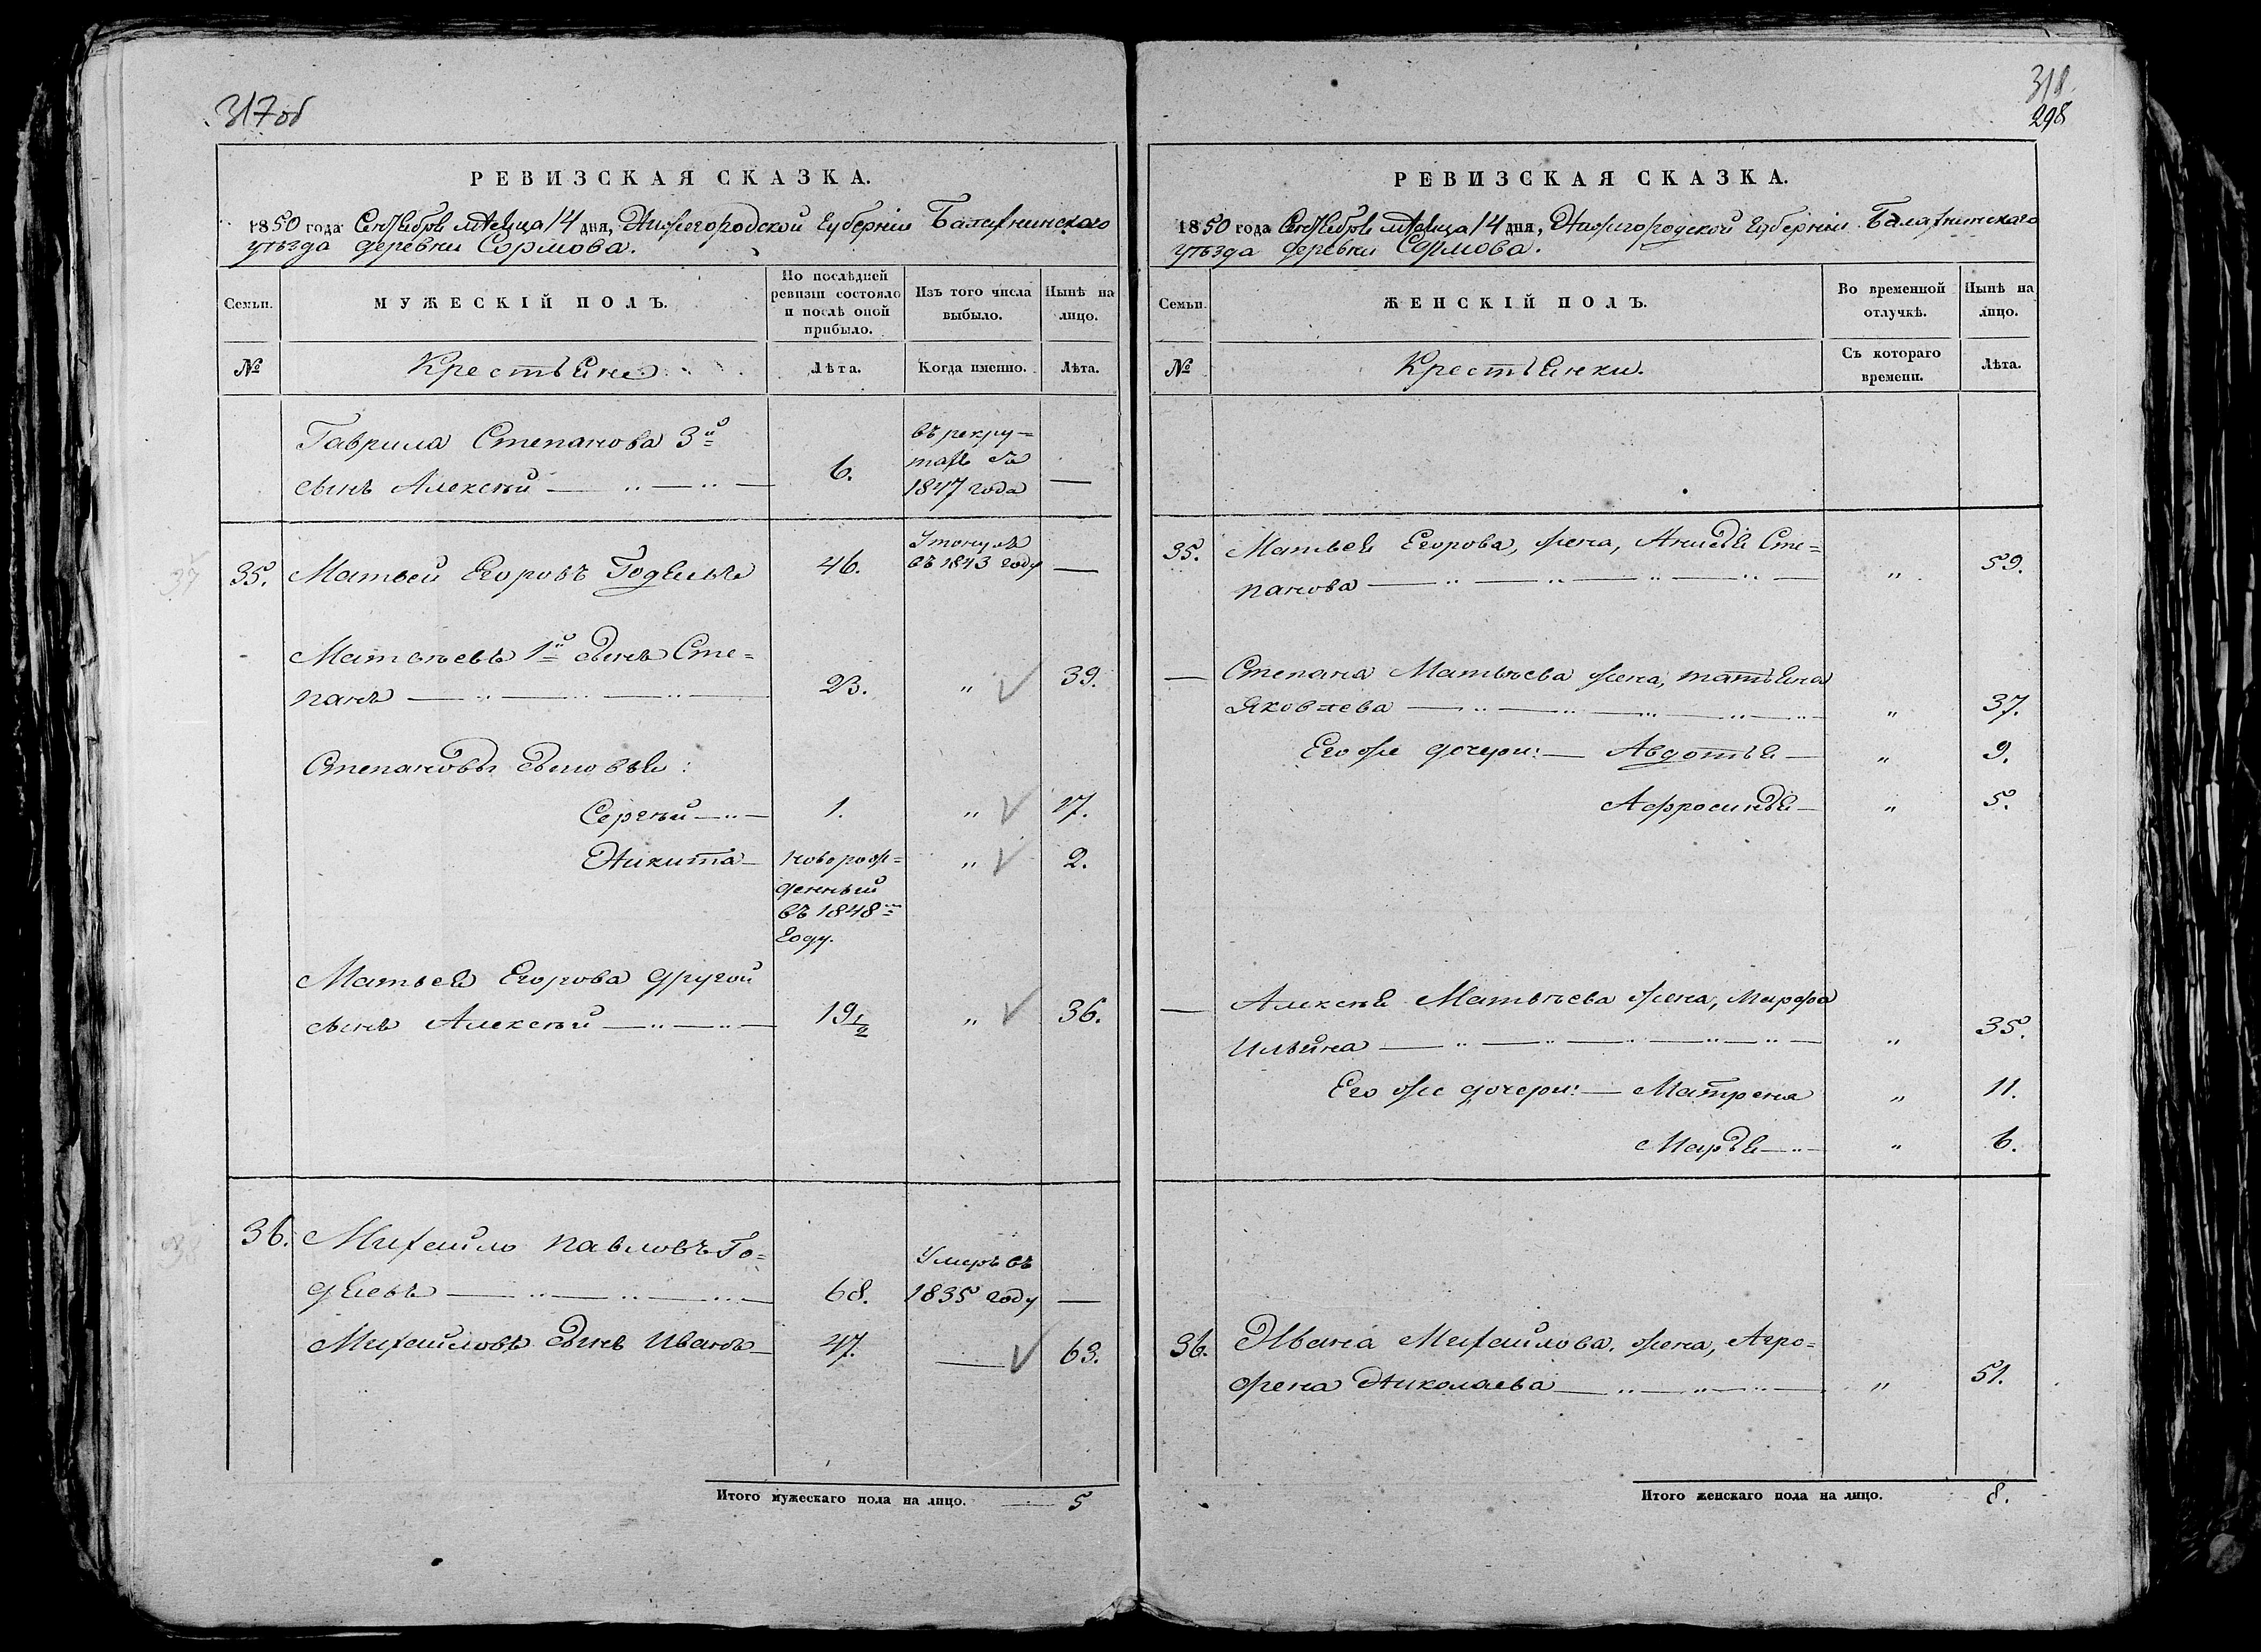 317об
РЕВИЗСКАЯ СКАЗКА.
1850 года Сентября месяца 14 дня, Нижегородской Губернiи Балахнинскаго
уѣзда деревни Сормова.
Семьи.
МУЖЕСКIЙ ПОЛЪ.
По послѣдней
ревизiи состояло
и послѣ оной
прибыло.
Изъ того числа
выбыло.
Нынѣ на
лицо.
№
Крестьяне
Лѣта.
Когда именно.
Лѣта.
Гаврила Степанова 3й
сынъ Алексѣй
6.
въ рекру=
тахъ съ
1847 года
—
35.
Матвей Егоровъ Годяевъ
46.
Утонулъ
въ 1843 году
—
Матвѣевъ 1й сынъ Сте=
панъ
23.
"
39.
Степановы сыновья:
Сергѣй
1.
"
17.
Никита
новорож=
денный
въ 1848м
году.
"
2.
Матвея Егорова другой
сынъ Алексѣй
19½
"
36.
36.
Михайло Павловъ Го=
дяевъ
68.
Умеръ въ
1835 году
—
Михайловъ сынъ Иванъ
47.
—
63.
Итого мужескаго пола на лицо. — 5
318.
298
РЕВИЗСКАЯ СКАЗКА.
1850 года Сентября месяца 14 дня, Нижегородской Губернiи Балахнинскаго
уѣзда деревни Сормова.
Семьи.
ЖЕНСКIЙ ПОЛЪ.
Во временной
отлучкѣ.
Нынѣ на
лицо.
№
Крестьянки.
Съ котораго
времени.
Лѣта.
35.
Матвея Егорова, жена, Анисья Сте=
панова
"
59.
— Степана Матвѣева жена, татьяна
Яковлева
"
37.
Его же дочери: — Авдотья —
"
9.
Афросинья —
"
5.
— Алексѣя Матвѣева жена, Марфа
Ильина
"
35.
Его же дочери: — Матрена
"
11.
Марья
"
6.
36.
Ивана Михайлова, жена, Агра=
фена Николаева
"
51.
Итого женскаго пола на лицо. 8.